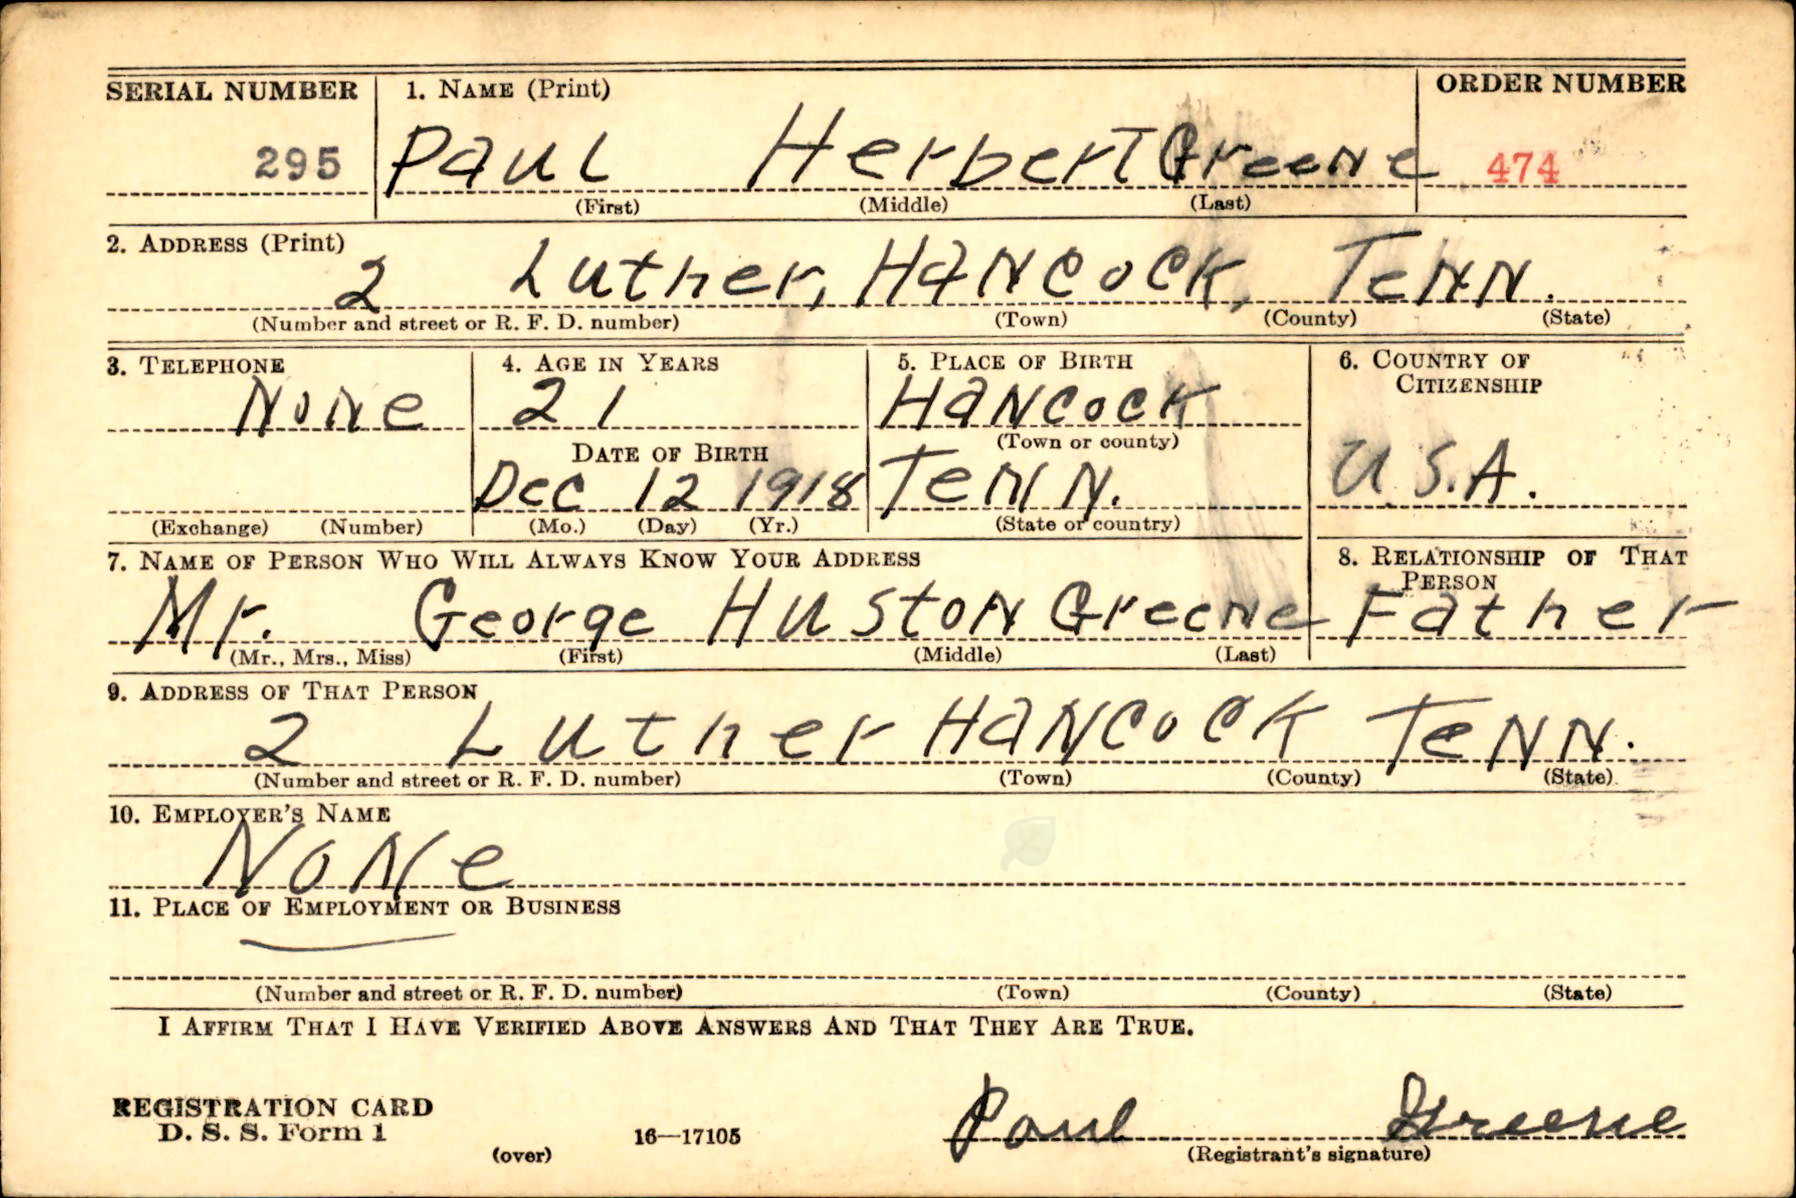 SERIAL NUMBER 1. NAME (Print) ORDER NUMBER
295 Paul Herbert Greene 474
(First) (Middle) (Last)
2. ADDRESS (Print)
2 Luther, Hancock, Tenn.
(Number and street or R. F. D. number) (Town) (County) (State)
3. TELEPHONE 4. AGE IN YEARS 5. PLACE OF BIRTH 6. COUNTRY OF
CITIZENSHIP
None 21 Hancock
(Town or county)
DATE OF BIRTH
Dec 12 1918 Tenn. U.S.A.
(Exchange) (Number) (Mo.) (Day) (Yr.) (State or country)
7. NAME OF PERSON WHO WILL ALWAYS KNOW YOUR ADDRESS 8. RELATIONSHIP OF THAT
PERSON
Mr. George Huston Greene Father
(Mr., Mrs., Miss) (First) (Middle) (Last)
9. ADDRESS OF THAT PERSON
2 Luther Hancock Tenn.
(Number and street or R. F. D. number) (Town) (County) (State)
10. EMPLOYER'S NAME
None
11. PLACE OF EMPLOYMENT OR BUSINESS
(Number and street or R. F. D. number) (Town) (County) (State)
I AFFIRM THAT I HAVE VERIFIED ABOVE ANSWERS AND THAT THEY ARE TRUE.
REGISTRATION CARD
D. S. S. Form 1 16—17105 Paul Greene
(over) (Registrant's signature)